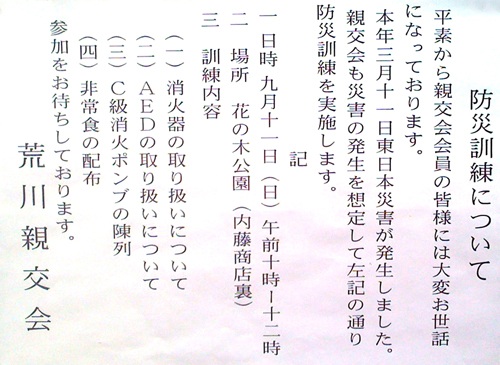 防災訓練について
平素から親交会会員の皆様には大変お世話
になっております。
本年三月十一日東日本災害が発生しました。
親交会も災害の発生を想定して左記の通り
防災訓練を実施します。
記
一 日時 九月十一日（日）午前十時ー十二時
二 場所 花の木公園（内藤商店裏）
三 訓練内容
（一）消火器の取り扱いについて
（二）AEDの取り扱いについて
（三）C級消火ポンプの陳列
（四）非常食の配布
参加をお待ちしております。
荒川親交会